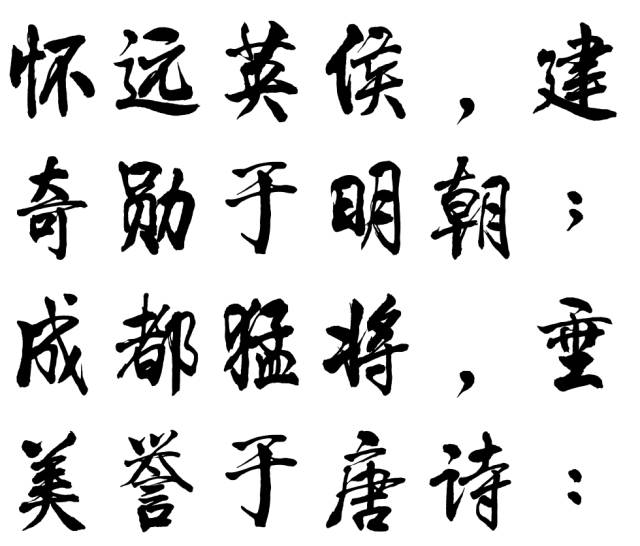 怀远英侯，建
奇勋于明朝；
成都猛将，垂
美誉于唐诗：